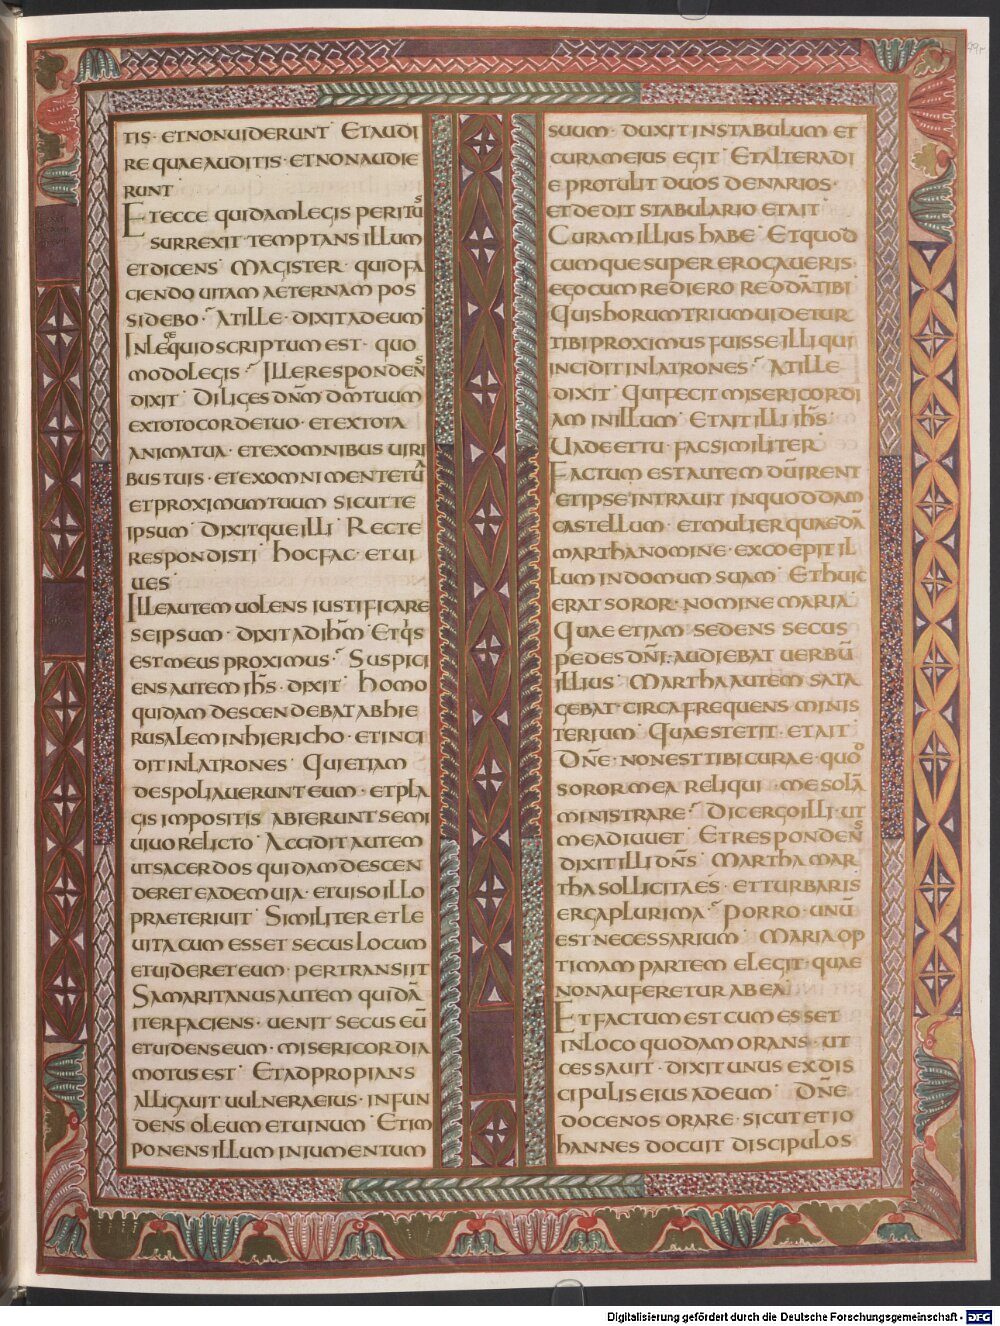 TIS · ET NON UIDERUNT · ET AUDI
RE QUAE AUDITIS · ET NON AUDIE
RUNT
ET ECCE QUIDAM LEGIS PERITUS
SURREXIT TEMPTANS ILLUM
ET DICENS · MAGISTER · QUID FA
CIENDO UITAM AETERNAM POS
SIDEBO · AT ILLE · DIXIT AD EUM
IN LEGE QUID SCRIPTUM EST · QUO
MODO LEGIS · ILLE RESPONDENS
DIXIT · DILIGES DNM DM TUUM
EX TOTO CORDE TUO · ET EX TOTA
ANIMA TUA · ET EX OMNIBUS UIRI
BUS TUIS · ET EX OMNI MENTE TUA
ET PROXIMUM TUUM SICUT TE
IPSUM · DIXITQUE ILLI · RECTE
RESPONDISTI · HOC FAC · ET UI
UES
ILLE AUTEM UOLENS IUSTIFICARE
SE IPSUM · DIXIT AD IHM · ET QIS
EST MEUS PROXIMUS · SUSPICI
ENS AUTEM IHS · DIXIT · HOMO
QUIDAM DESCENDEBAT AB HIE
RUSALEM IN HIERICHO · ET INCI
DIT IN LATRONES · QUI ETIAM
DESPOLIAUERUNT EUM · ET PLA
GIS IMPOSITIS · ABIERUNT SEMI
UIUO RELICTO · ACCIDIT AUTEM
UT SACERDOS QUIDAM DESCEN
DERET EADEM UIA · ET UISO ILLO
PRAETERIUIT · SIMILITER ET LE
UITA CUM ESSET SECUS LOCUM
ET UIDERET EUM · PERTRANSIIT
SAMARITANUS AUTEM QUIDĀ
ITER FACIENS · UENIT SECUS EŪ
ET UIDENS EUM · MISERICORDIA
MOTUS EST · ET ADPROPIANS
ALLIGAUIT UULNERA EIUS · INFUN
DENS OLEUM ET UINUM · ET IM
PONENS ILLUM IN IUMENTUM
SUUM · DUXIT IN STABULUM ET
CURAM EIUS EGIT · ET ALTERA DI
E PROTULIT DUOS DENARIOS ·
ET DEDIT STABULARIO ET AIT
CURAM ILLIUS HABE · ET QUOD
CUMQUE SUPER EROGAUERIS ·
EGO CUM REDIERO REDDĀ TIBI
QUIS HORUM TRIUM UIDETUR
TIBI PROXIMUS FUISSE ILLI QUI
INCIDIT IN LATRONES · AT ILLE
DIXIT · QUI FECIT MISERICORDI
AM IN ILLUM · ET AIT ILLI IHS ·
UADE ET TU · FAC SIMILITER ·
FACTUM EST AUTEM DŪ IRENT
ET IPSE INTRAUIT IN QUODDAM
CASTELLUM · ET MULIER QUAEDĀ
MARTHA NOMINE · EXCOEPIT IL
LUM IN DOMUM SUAM · ET HUIC
ERAT SOROR · NOMINE MARIA ·
QUAE ETIAM SEDENS SECUS
PEDES DNI · AUDIEBAT UERBŪ
ILLIUS · MARTHA AUTEM SATA
GEBAT · CIRCA FREQUENS MINIS
TERIUM · QUAE STETIT · ET AIT
DNE · NON EST TIBI CURAE · QUOD
SOROR MEA RELIQUI · ME SOLĀ
MINISTRARE · DIC ERGO ILLI · UT
ME ADIUUET · ET RESPONDENS
DIXIT ILLI DNS · MARTHA MAR
THA SOLLICITA ES · ET TURBARIS
ERGA PLURIMA · PORRO · UNŪ
EST NECESSARIUM · MARIA OP
TIMAM PARTEM ELEGIT · QUAE
NON AUFERETUR AB EA
ET FACTUM EST CUM ESSET
IN LOCO QUODAM ORANS · UT
CESSAUIT · DIXIT UNUS EX DIS
CIPULIS EIUS AD EUM · DNE
DOCE NOS ORARE · SICUT ET IO
HANNES DOCUIT DISCIPULOS
Digitalisierung gefördert durch die Deutsche Forschungsgemeinschaft - DFG